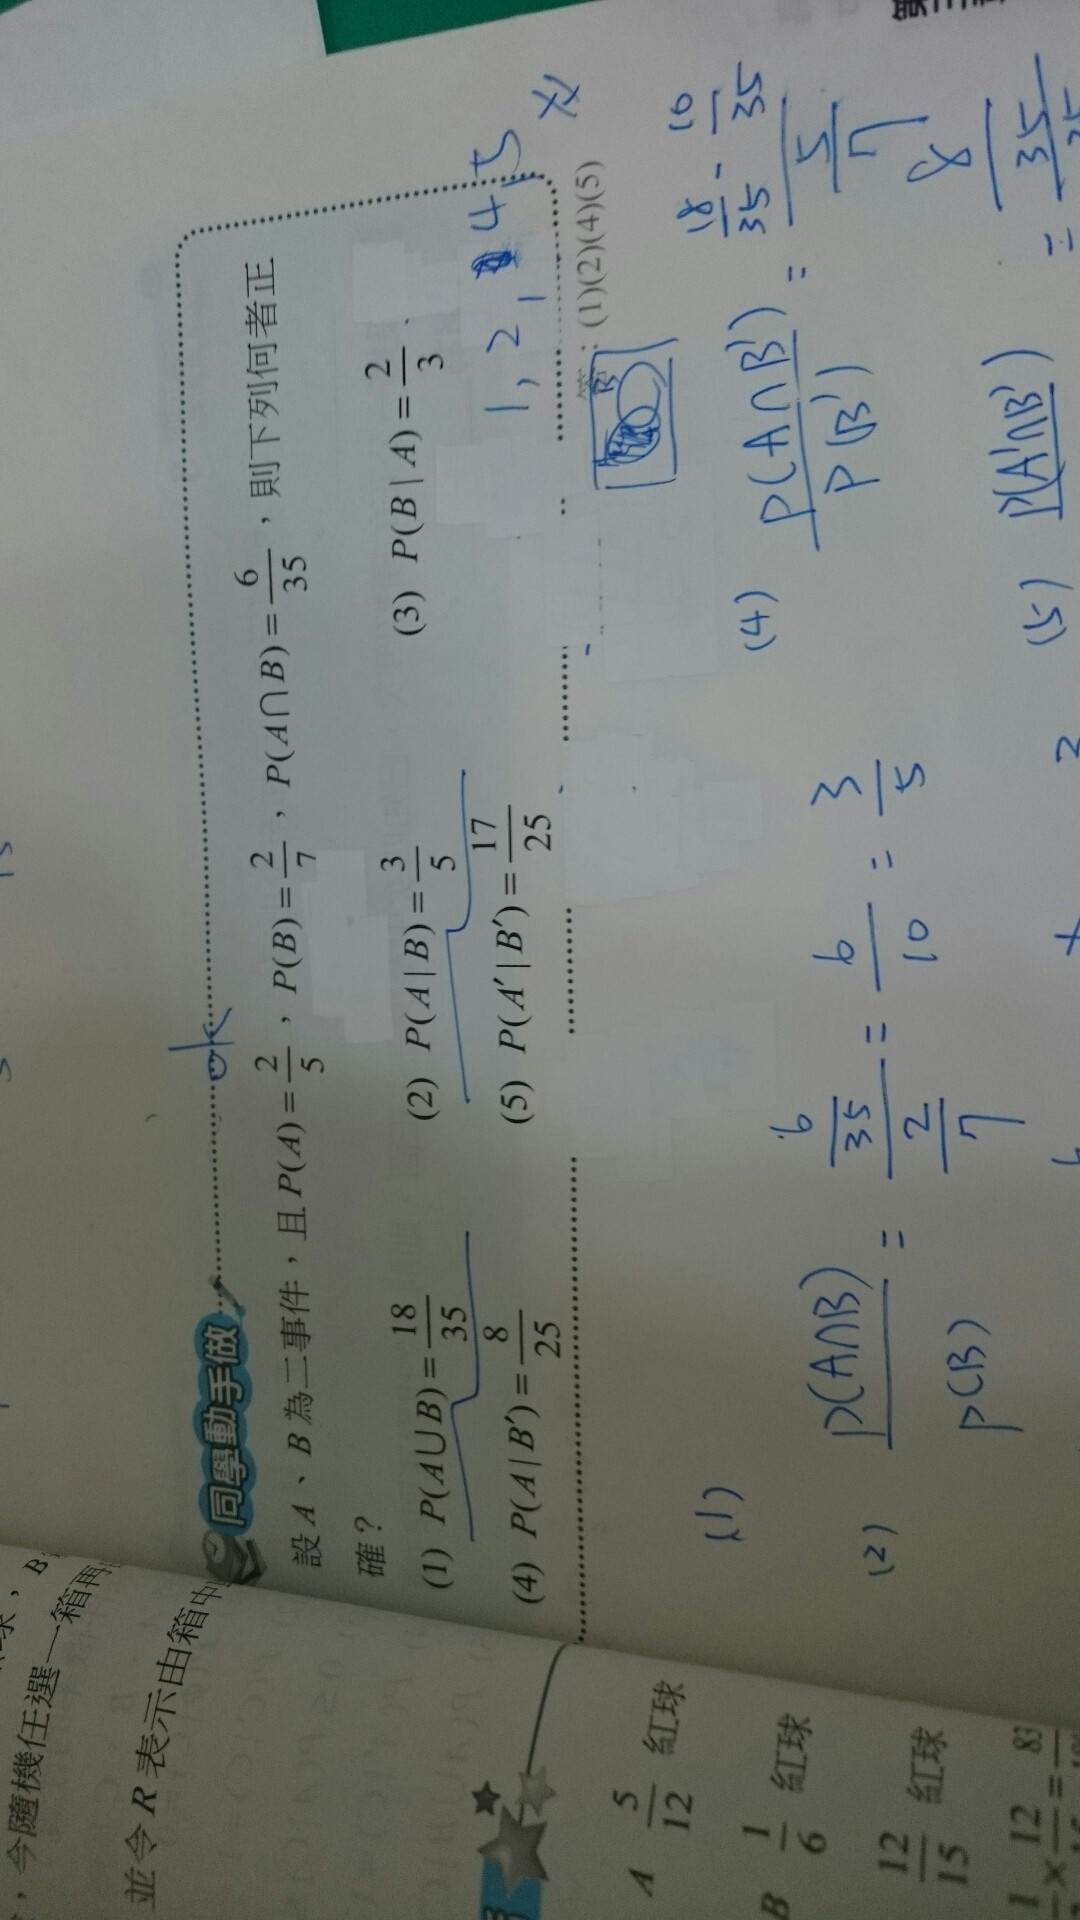 同學動手做
ok
設 A、B 為二事件，且 P(A) = 2/5，P(B) = 2/7，P(A∩B) = 6/35，則下列何者正
確？
(1) P(A∪B) = 18/35 (2) P(A|B) = 3/5 (3) P(B|A) = 2/3
(4) P(A|B′) = 8/25 (5) P(A′|B′) = 17/25
1, 2, 4, 5
答：(1)(2)(4)(5)
B
(1)
(2) P(A∩B)/P(B) = (6/35)/(2/7) = 6/10 = 3/5
(4) P(A∩B′)/P(B′) = (18/35 - 10/35)/(5/7)
= 8/35
(5) P(A′∩B′)
，今隨機任選一箱再
並令 R 表示由箱中
A 5/12 紅球
B 1/6 紅球
12/15 紅球